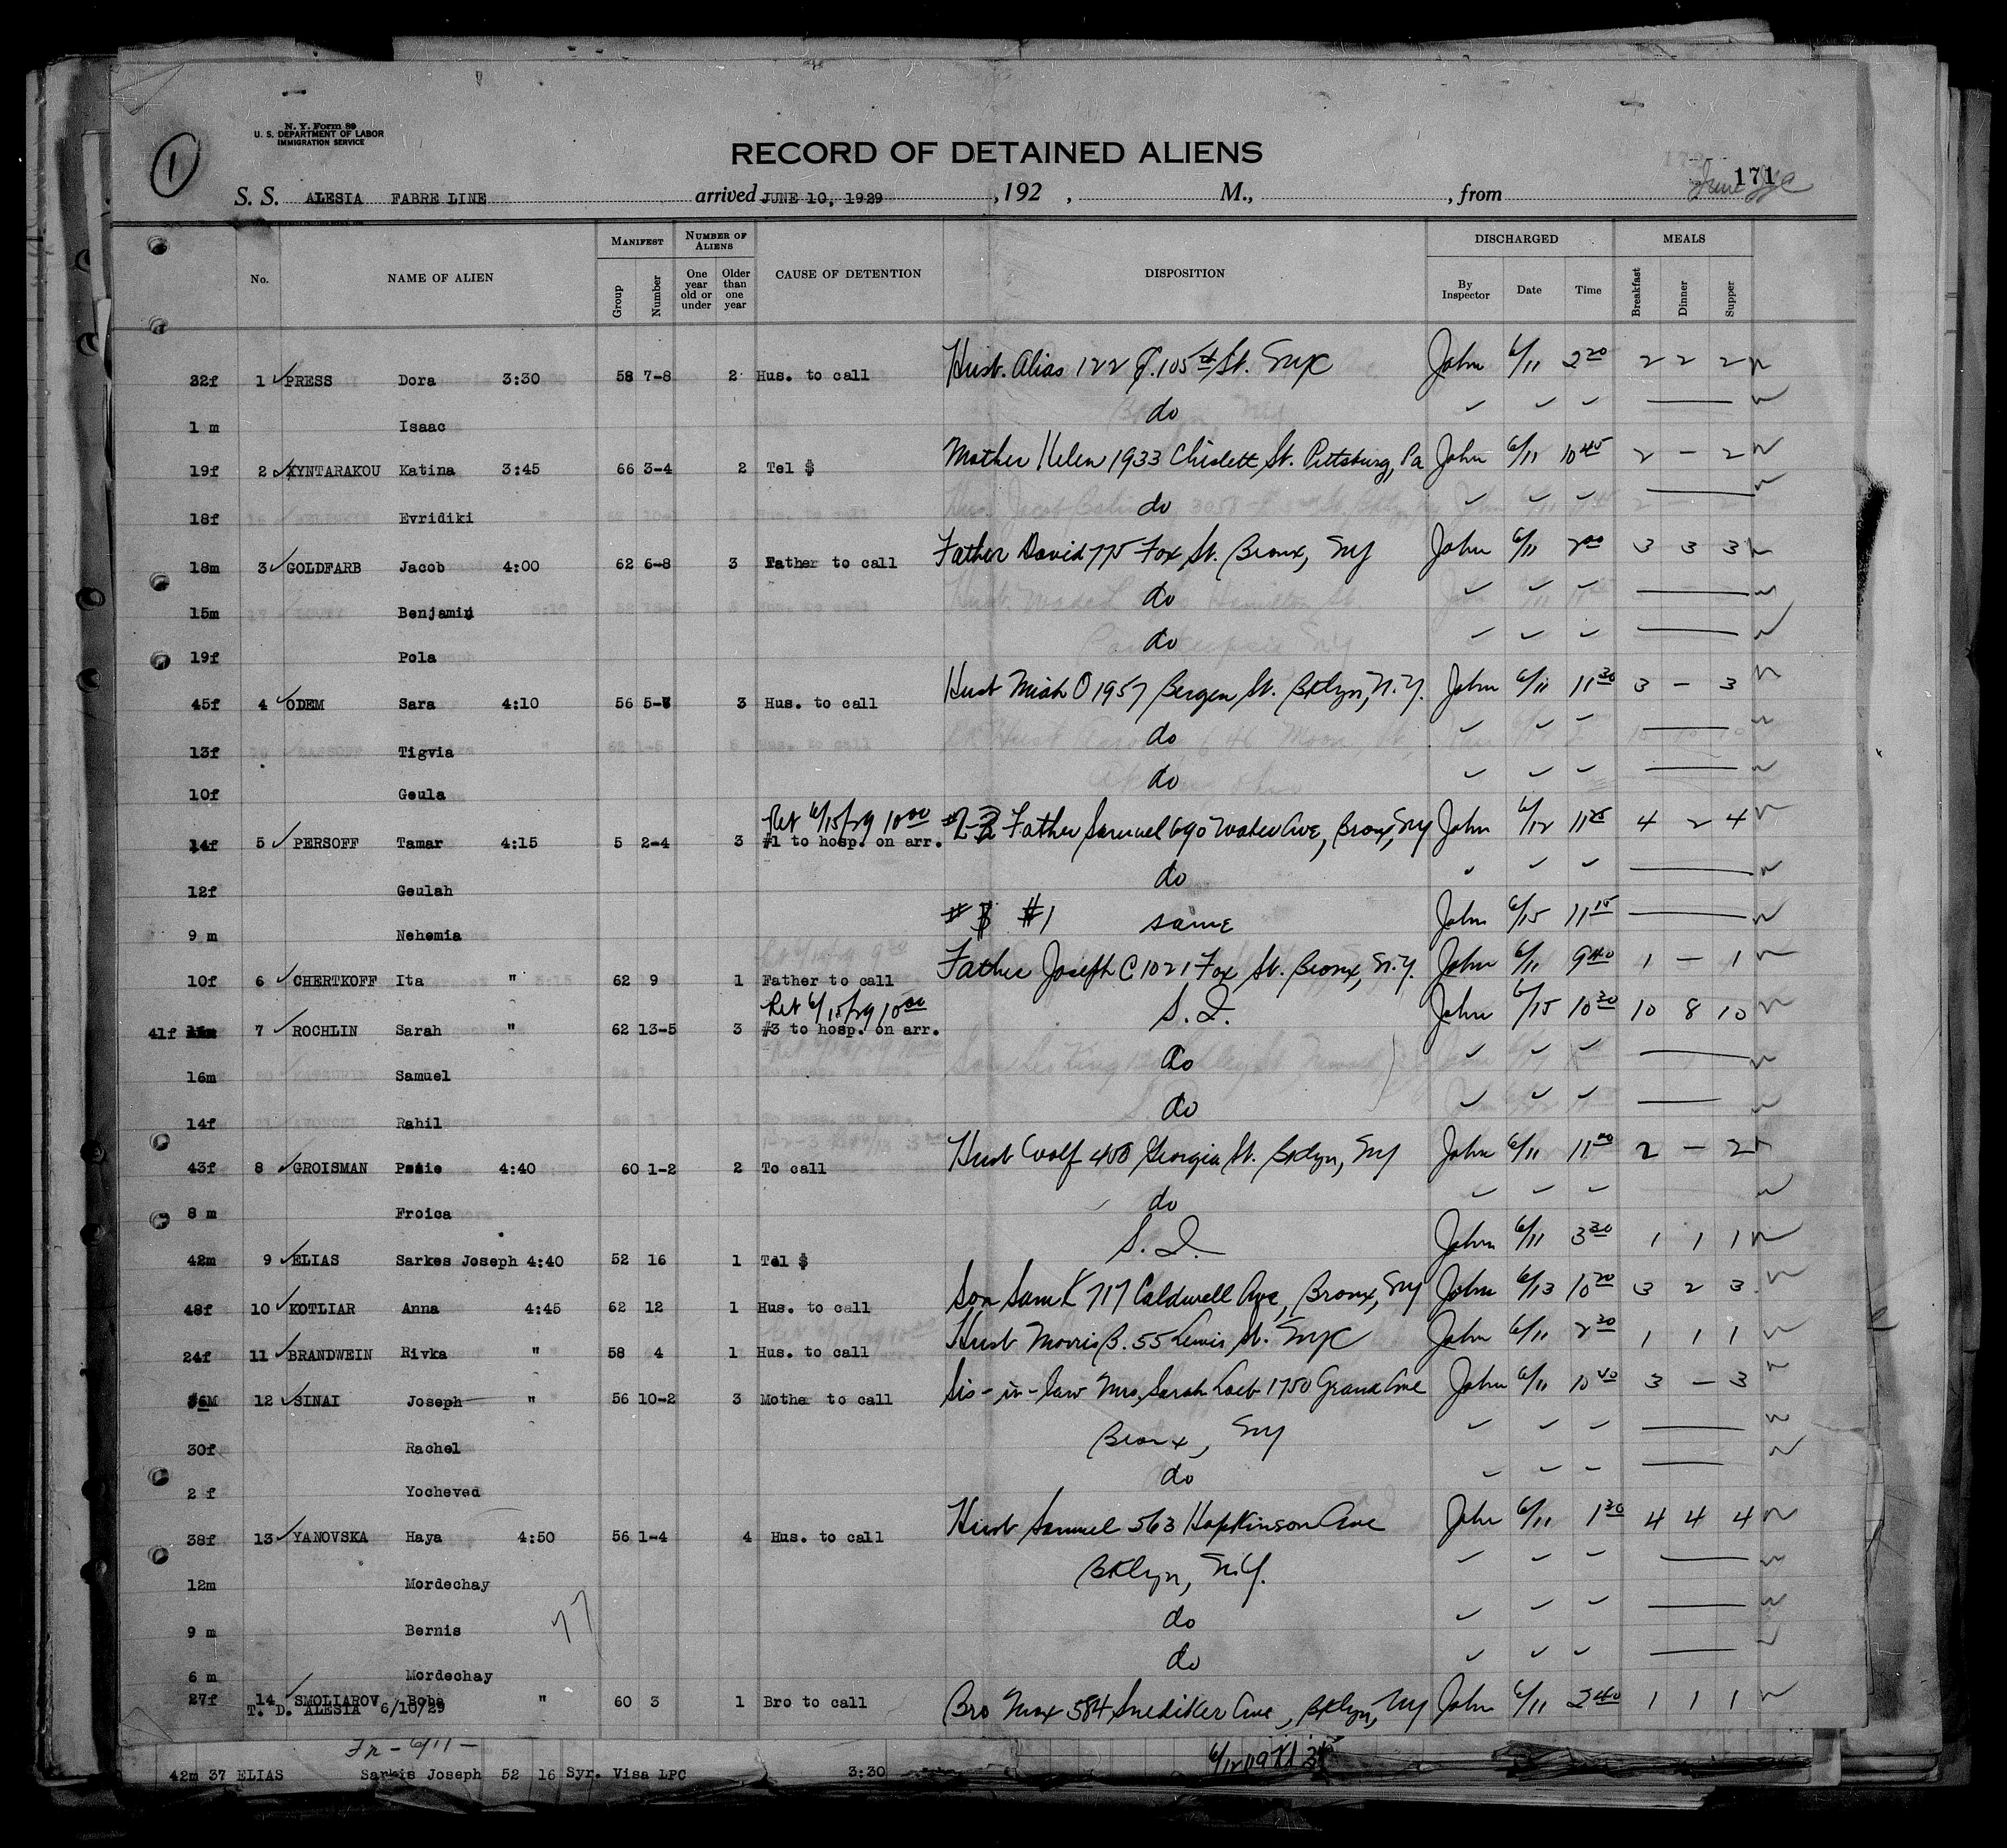 1
N. Y. Form 89
U. S. DEPARTMENT OF LABOR
IMMIGRATION SERVICE
RECORD OF DETAINED ALIENS
171
S. S. ALESIA FABRE LINE arrived JUNE 10, 1929, 192 , M., , from
No. NAME OF ALIEN MANIFEST Group Number NUMBER OF ALIENS One year old or under Older than one year CAUSE OF DETENTION DISPOSITION DISCHARGED By Inspector Date Time MEALS Breakfast Dinner Supper
22f 1 ✓ PRESS Dora 3:30 58 7-8 2 Hus. to call Husb. Alias 122 E. 105th St. NYC John 6/11 2 20 2 2 2
1 m Isaac do ✓ ✓ ✓
19f 2 ✓ XYNTARAKOU Katina 3:45 66 3-4 2 Tel $ Mother Helen 1933 Chislett St. Pittsburg, Pa John 6/11 10 45 2 - 2
18f Evridiki do ✓ ✓ ✓
18m 3 ✓ GOLDFARB Jacob 4:00 62 6-8 3 Father to call Father David 775 Fox St. Bronx, NY John 6/11 2 00 3 3 3
15m Benjamin do ✓ ✓ ✓
19f Pola do ✓ ✓ ✓
45f 4 ✓ ODEM Sara 4:10 56 5-7 3 Hus. to call Husb O 1957 Bergen St. Bklyn, N.Y. John 6/11 11 30 3 - 3
13f Tigvia do ✓ ✓ ✓
10f Geula do ✓ ✓ ✓
14f 5 ✓ PERSOFF Tamar 4:15 5 2-4 3 Ret 6/15/29 10 00 #1 to hosp. on arr. Father Samuel 690 Ave, Bronx, NY John 6/12 11 25 4 2 4
12f Geulah do ✓ ✓ ✓
9 m Nehemia #1 same John 6/15 11 15
10f 6 ✓ CHERTKOFF Ita " 62 9 1 Father to call Father Joseph C 1021 Fox St. Bronx, N.Y. John 6/11 9 40 1 - 1
41f 7 ✓ ROCHLIN Sarah " 62 13-5 3 Ret 6/15/29 10 00 #3 to hosp. on arr. S. I. John 6/15 10 30 10 8 10
16m Samuel do ✓ ✓ ✓
14f Rahil do ✓ ✓ ✓
43f 8 ✓ GROISMAN 4:40 60 1-2 2 To call Husb Wolf 400 Georgia St. Bklyn, NY John 6/11 11 00 2 - 2
8 m Froica do ✓ ✓ ✓
42m 9 ✓ ELIAS Sarkes Joseph 4:40 52 16 1 Tel $ S. I. John 6/11 3 30 1 1 1
48f 10 ✓ KOTLIAR Anna 4:45 62 12 1 Hus. to call Son Sam K 717 Caldwell Ave, Bronx, NY John 6/13 10 20 3 2 3
24f 11 ✓ BRANDWEIN Rivka " 58 4 1 Hus. to call Husb Morris B. 55 Lewis St. NYC John 6/11 2 30 1 1 1
36M 12 ✓ SINAI Joseph " 56 10-2 3 Mothe to call Sis-in-law Mrs. Sarah Loeb 1750 Grand Ave John 6/11 10 40 3 - 3
30f Rachel Bronx, NY ✓ ✓ ✓
2 f Yocheved do ✓ ✓ ✓
38f 13 ✓ YANOVSKA Haya 4:50 56 1-4 4 Hus. to call Husb Samuel 563 Hopkinson Ave John 6/11 1 30 4 4 4
12m Mordechay Bklyn, N.Y. ✓ ✓ ✓
9 m Bernis do ✓ ✓ ✓
6 m Mordechay do ✓ ✓ ✓
27f 14 ✓ SMOLIAROV Boba " 60 3 1 Bro to call Bro Max 584 Snediker Ave, Bklyn, NY John 6/11 2 40 1 1 1
T. D. ALESIA 6/10/29
77
Fr - 6/11 -
42m 37 ELIAS Sarkis Joseph 52 16 Syr. Visa LPC 3:30